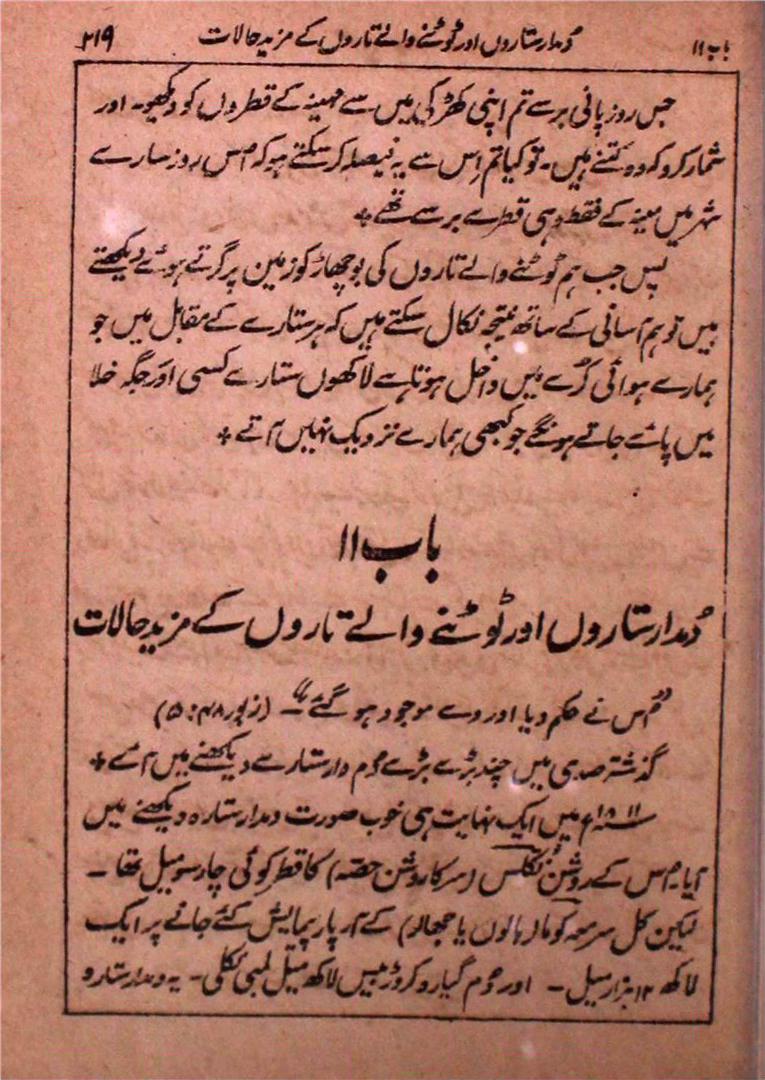 باب ۱۱ دُمدار ستاروں اور ٹوٹنے والے تاروں کے مزید حالات ۲۱۹
جس روز پانی برسے تم اپنی کھڑکی میں سے مہینہ کے قطروں کو دیکھیو۔ اور
شمار کرو کہ وہ کتنے ہیں۔ تو کیا تم اِس سے یہ فیصلہ کر سکتے ہو کہ اُس روز سارے
شہر میں مینہ کے فقط وہی قطرے برسے تھے +
پس جب ہم ٹوٹنے والے تاروں کی بوچھاڑ کو زمین پر گرتے ہوئے دیکھتے
ہیں تو ہم آسانی کے ساتھ نتیجہ نکال سکتے ہیں کہ ہر ستارے کے مقابل میں جو
ہمارے ہوائی کُرے میں داخل ہوتا ہے لاکھوں ستارے کسی اَور جگہ خلا
میں پائے جاتے ہونگے جو کبھی ہمارے نزدیک نہیں آتے +
باب ۱۱
دُمدار ستاروں اور ٹوٹنے والے تاروں کے مزید حالات
”اُس نے حکم دیا اور وے موجود ہو گئے“۔ (زبور ۱۴۸: ۵)
گذشتہ صدی میں چند بڑے بڑے دُم دار ستارے دیکھنے میں آئے +
سنہ ۱۸۱۱ء میں ایک نہایت ہی خوب صورت دمدار ستارہ دیکھنے میں
آیا۔ اُس کے روشن نُکلس (سر کا روشن حصّہ) کا قطر کوئی چار سو میل تھا۔
لیکن کل سر معہ کوما (بالوں یا جھالر) کے آر پار پیمایش کئے جانے پر ایک
لاکھ ۱۲ ہزار میل۔ اور دُم گیارہ کروڑ بیس لاکھ میل لمبی نکلی۔ یہ دمدار ستارہ